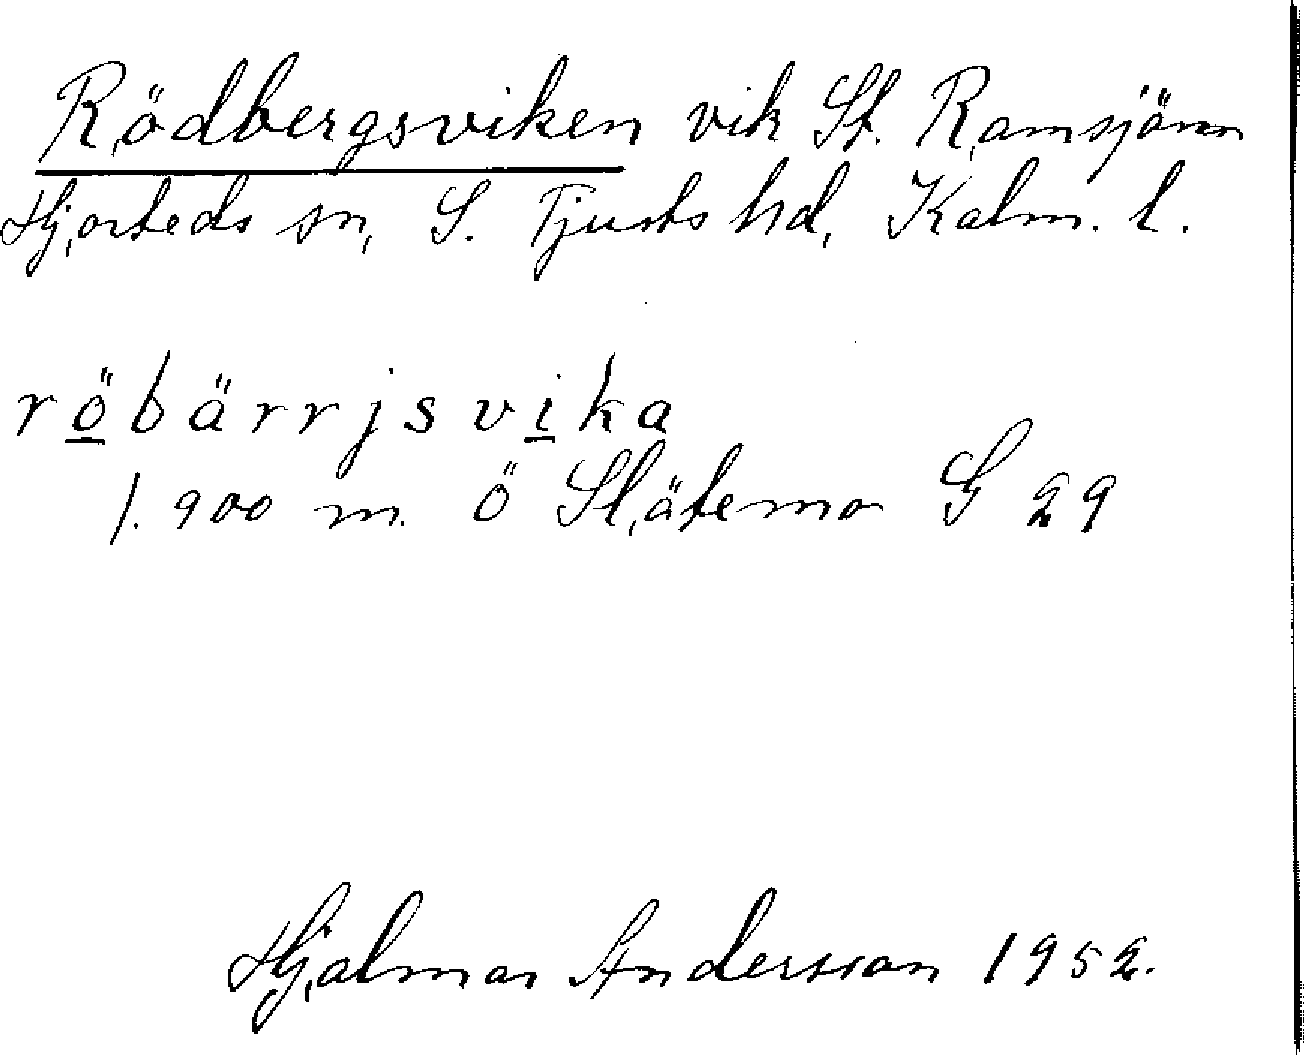 Rödbergsviken vik St. Ramsjön
Hjorteds sn, S. Tjusts hd, Kalm. l.
röbärrjsvika
1.900 m. Ö Slätemo G 29
Hjalmar Andersson 1952.